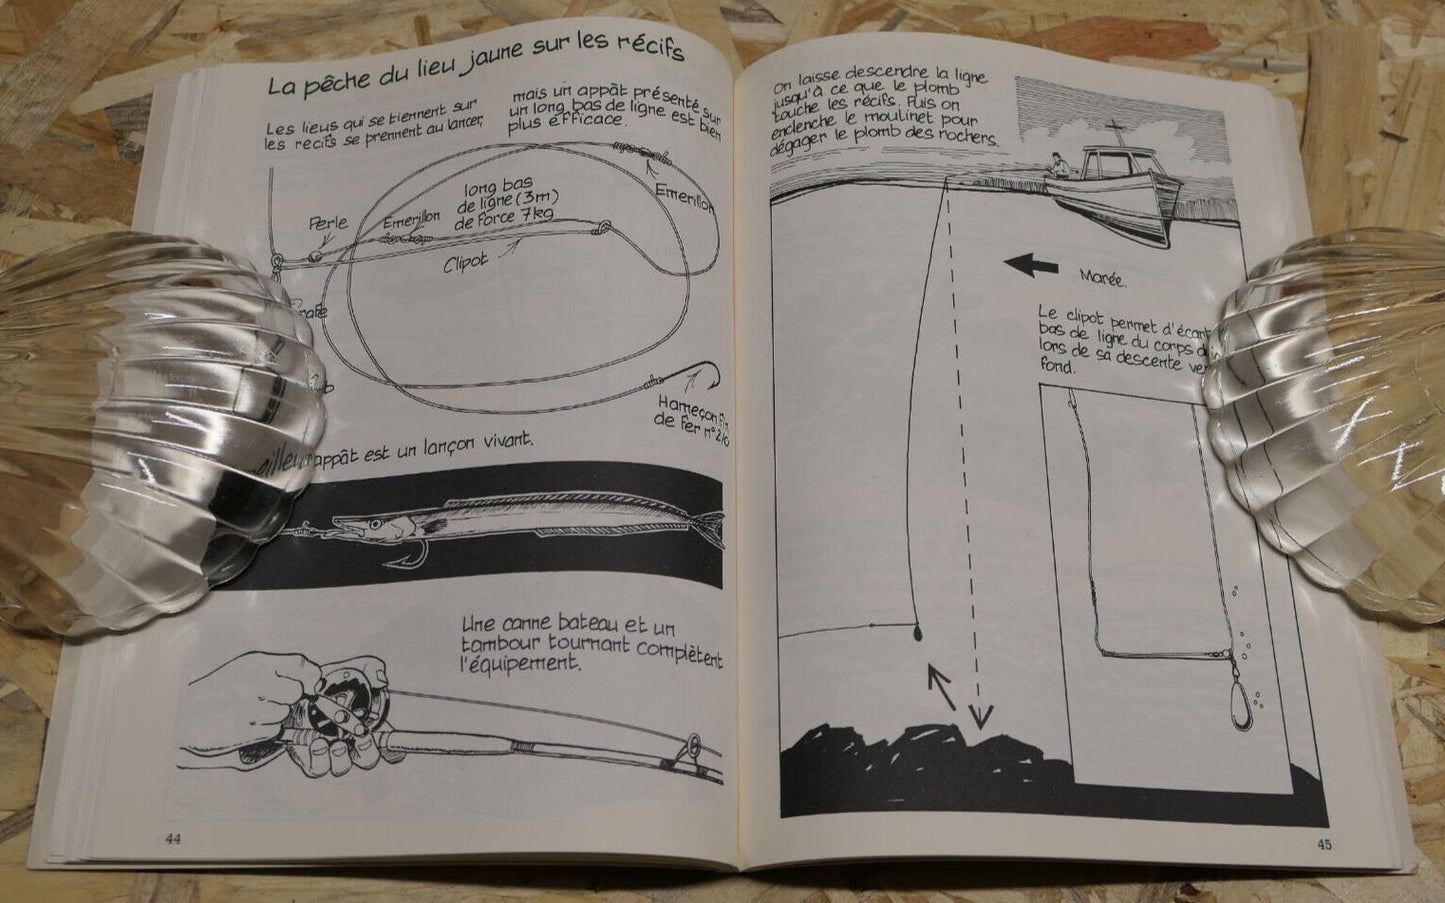 La pêche du lieu jaune sur les récifs
Les lieus qui se tiennent sur
les récifs se prennent au lancer,
mais un appât présenté sur
un long bas de ligne est bien
plus efficace.
Emerillon
long bas
de ligne (3m)
de force 7kg
Perle
Emerillon
Clipot
Hameçon fin
de fer n° 2/0
appât est un lançon vivant.
Une canne bateau et un
tambour tournant complètent
l'équipement.
44
On laisse descendre la ligne
jusqu'à ce que le plomb
touche les récifs. Puis on
enclenche le moulinet pour
dégager le plomb des rochers.
Marée.
Le clipot permet d'écart
bas de ligne du corps
lors de sa descente
fond.
45